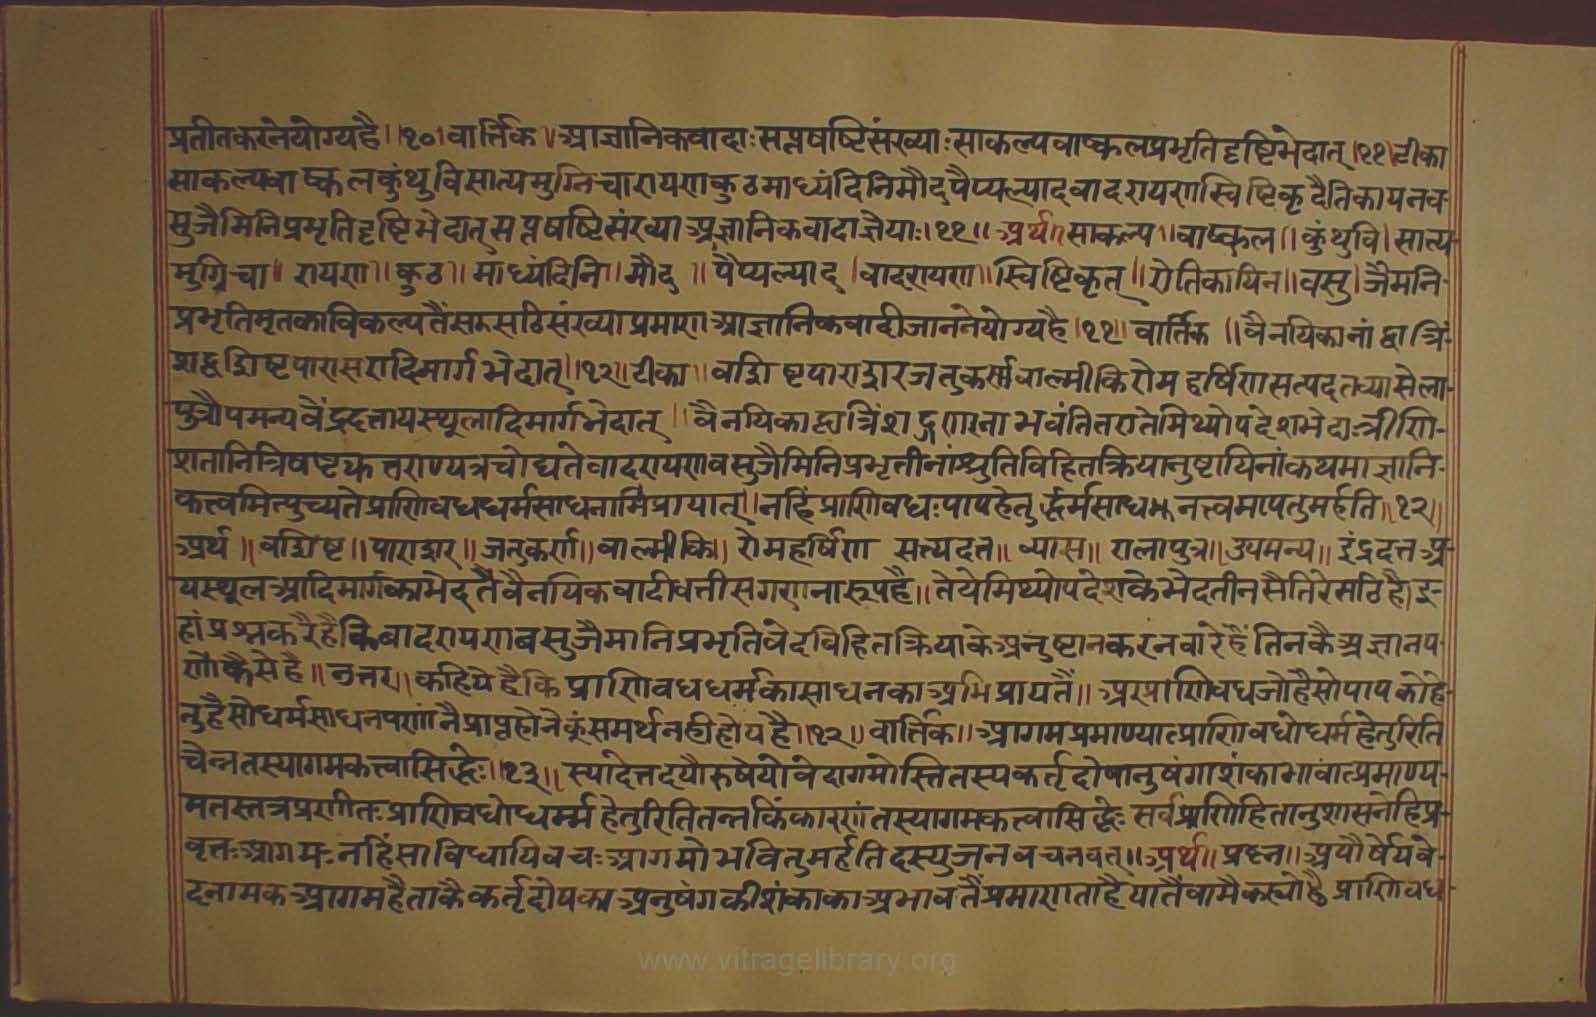 प्रतीतकरनेयोग्यहै।।१०।वार्त्तिक॥आज्ञानिकवादाःसप्तषष्टिसंख्याःसाकल्यवाष्कलप्रभृतिदृष्टिभेदात्।११।टीका
साकल्यवाष्कलकुंथुविसात्यमुग्निचारायणकुठमाध्यंदिनिमौदपैप्यल्यादवादरायणस्विष्टिकृदैतिकायनव-
सुजैमिनिप्रभृतिदृष्टिभेदात्सप्तषष्टिसंख्याअज्ञानिकवादाज्ञेयाः।११॥अर्थ॥साकल्प॥वाष्कल॥कुंथुवि।सात्य-
मुग्निचा॥रायण॥कुठ॥माध्यंदिनि॥मौद॥पैप्यल्याद।वादरायण॥स्विष्टिकृत्॥ऐतिकायिन॥वसु।जैमनि-
प्रभृतिमृतकाविकल्पतैंसतसठिसंख्याप्रमाणआज्ञानिकवादीजाननेयोग्यहै।११॥वार्तिक॥वैनयिकानांद्वात्रिं-
शद्वशिष्टपारासरादिमार्गभेदात्॥१२॥टीका॥वशिष्टपाराशरजतुकर्णवाल्मीकिरोमहर्षिणिसत्पदतव्यासेला-
पुत्रौपमन्यवैंद्रदत्तायस्थूलादिमार्गभेदात्॥वैनयिकाद्वात्रिंशद्गणनाभवंतितएतेमिथ्योपदेशभेदाःत्रीणि-
शतानित्रिषष्ट्युत्तराण्यत्रचोद्यतेवादरायणवसुजैमिनिप्रभृतीनांश्रुतिविहितक्रियानुष्टायिनांकथमाज्ञानि-
कत्त्वमित्युच्यतेप्राणिवधधर्मसाधनाभिप्रायात्॥नहिंप्राणिवधःपापहेतुर्द्धर्मसाधनत्त्वमापतुमर्हति॥१२॥
अर्थ॥वशिष्ट॥पाराशर॥जतुकर्ण॥वाल्मीकि॥रोमहर्षिण सत्यदत॥व्यास॥एलापुत्र॥उपमन्य॥इंद्रदत्तअ-
यस्थूलआदिमार्गकाभेदतैंवैनयिकवादीवत्तीसगणनारूपहै॥तेयेमिथ्योपदेशकेभेदतीनसैतिरेसठिहै।इ-
हांप्रश्नकरैहैकिवादरायणबसुजैमानिप्रभृतिवेदविहितक्रियाकेअनुष्टानकरनवारेहैंतिनकैअज्ञानप-
णौकैसेहै॥उत्तर॥कहियेहैकिप्राणिवधधर्मकासाधनकाअभिप्रायतैं॥अरप्राणिवधजोहैसोपापकोहे-
तुहैसोधर्मसाधनपणांनैप्राप्तहोनेकूंसमर्थनहीहोयहै॥१२॥वार्तिक॥आगमप्रमाण्यात्प्राणिवधोधर्महेतुरिति
चैन्नतस्यागमकत्त्वासिद्धेः॥१३॥स्यादेतदयौरुषेयोवेदागमोस्तितस्यकर्तृदोषानुषंगाशंकाभावात्प्रमाण्य-
मतस्तत्रप्रणीतःप्राणिवधोधर्म्महेतुरितितन्नकिंकारणंतस्यागमकत्त्वासिद्धेःसर्वप्राणिहितानुशासनेहिप्र-
वृतःआगमःनहिंसाविधायिवचःआगमोभवितुमर्हतिदस्युजनवचनवत्॥अर्थ॥प्रश्न॥अपौर्षेयवे-
दनामकआगमहैताकैकर्तृदोषकाअनुषंगकीशंकाकाअभावतैंप्रमाणताहैयातैंवामैकह्योहैप्राणिवध-
www.vitragelibrary.org